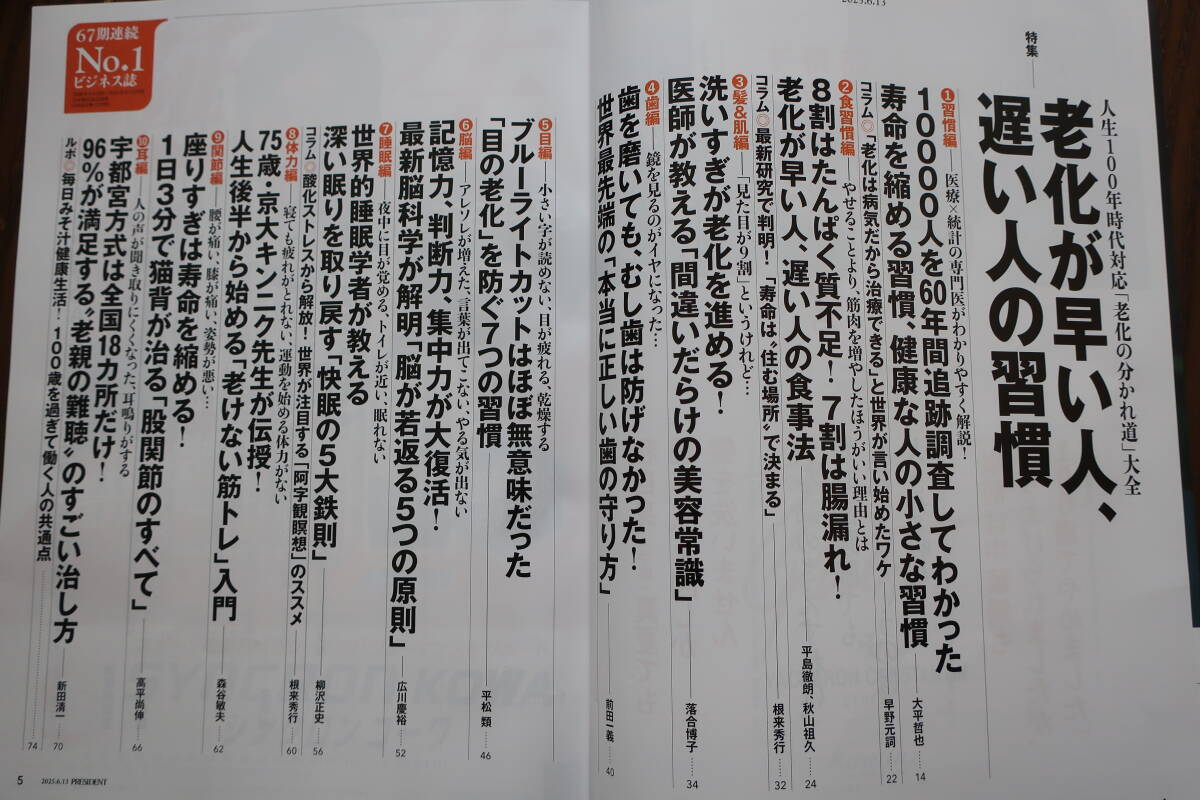 2025.6.13
特集
人生100年時代対応「老化の分かれ道」大全
老化が早い人、
遅い人の習慣
❶習慣編 ― 医療×統計の専門医がわかりやすく解説!
10000人を60年間追跡調査してわかった
寿命を縮める習慣、健康な人の小さな習慣 大平哲也……14
コラム◎「老化は病気だから治療できる」と世界が言い始めたワケ 早野元詞……22
❷食習慣編 ― やせることより、筋肉を増やしたほうがいい理由とは
8割はたんぱく質不足!7割は腸漏れ!
老化が早い人、遅い人の食事法 平島徹朗、秋山祖久……24
コラム◎最新研究で判明!「寿命は〝住む場所〟で決まる」 根来秀行……32
❸髪&肌編 ― 「見た目が9割」というけれど…
洗いすぎが老化を進める!
医師が教える「間違いだらけの美容常識」 落合博子……34
❹歯編 ― 鏡を見るのがイヤになった…
歯を磨いても、むし歯は防げなかった!
世界最先端の「本当に正しい歯の守り方」 前田一義……40
❺目編 ― 小さい字が読めない、目が疲れる、乾燥する
ブルーライトカットはほぼ無意味だった
「目の老化」を防ぐ7つの習慣 平松 類……46
❻脳編 ― アレソレが増えた、言葉が出てこない、やる気が出ない
記憶力、判断力、集中力が大復活!
最新脳科学が解明「脳が若返る5つの原則」 広川慶裕……52
❼睡眠編 ― 夜中に目が覚める、トイレが近い、眠れない
世界的睡眠学者が教える
深い眠りを取り戻す「快眠の5大鉄則」 柳沢正史……56
コラム◎酸化ストレスから解放!世界が注目する「阿字観瞑想」のススメ 根来秀行……60
❽体力編 ― 寝ても疲れがとれない、運動を始める体力がない
75歳・京大キンニク先生が伝授!
人生後半から始める「老けない筋トレ」入門 森谷敏夫……62
❾関節編 ― 腰が痛い、膝が痛い、姿勢が悪い…
座りすぎは寿命を縮める!
1日3分で猫背が治る「股関節のすべて」 高平尚伸……66
❿耳編 ― 人の声が聞き取りにくくなった、耳鳴りがする
宇都宮方式は全国18カ所だけ!
96%が満足する〝老親の難聴〟のすごい治し方 新田清一……70
ルポ◎毎日みそ汁健康生活!100歳を過ぎて働く人の共通点……74
67期連続
No.1
ビジネス誌
5 2025.6.13 PRESIDENT